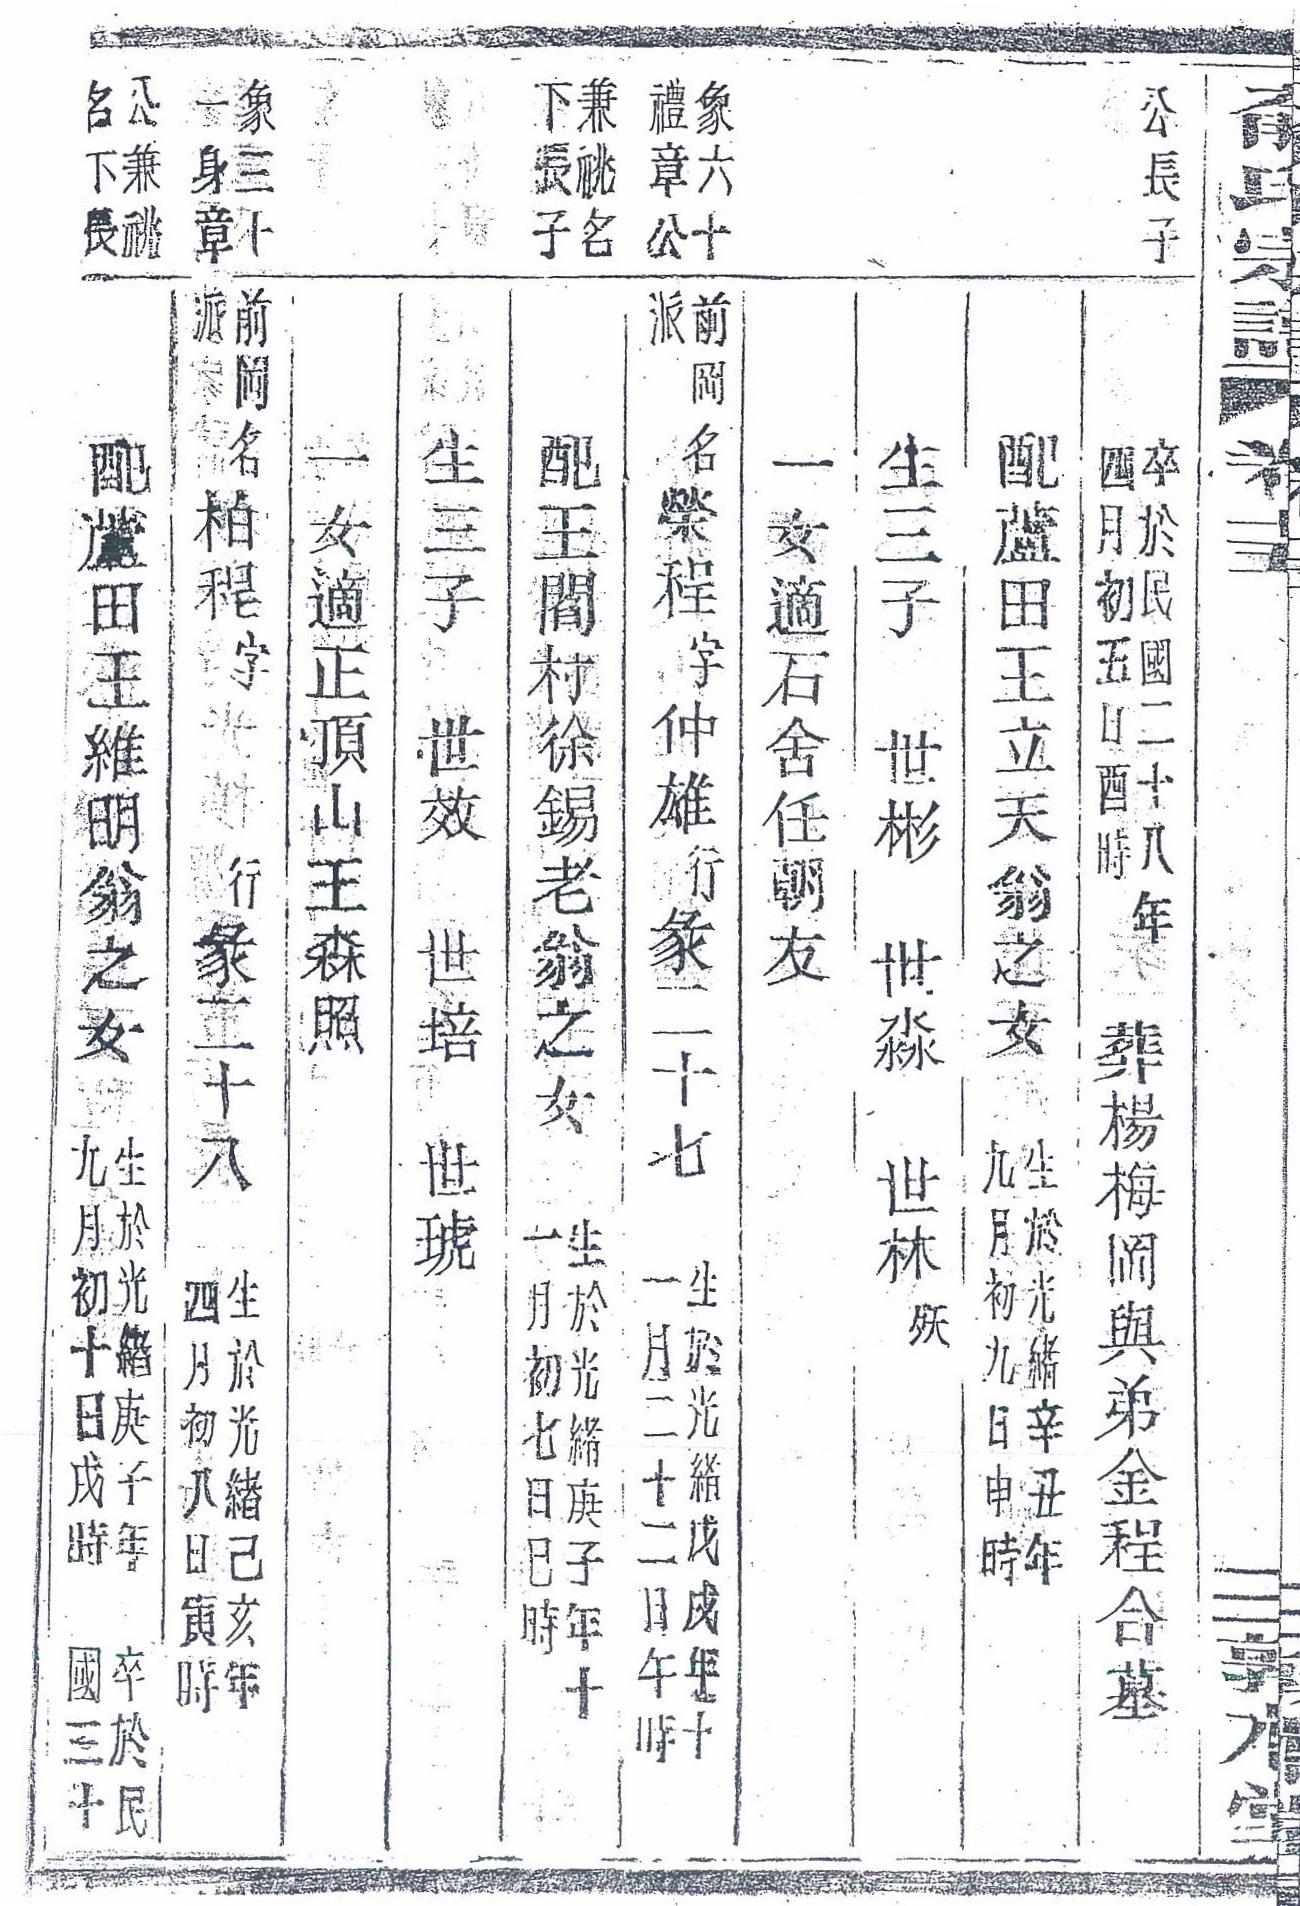 公長子
卒於民國二十八年
四月初五日酉時
葬楊梅岡與弟金程合墓
配蘆田王立天翁之女
生於光緒辛丑年
九月初九日申時
生三子 世彬 世淼 世林 殀
一女適石舍任朝友
象六十
禮章公
前岡
派
名榮程字仲雄行彖二十七
生於光緒戊戌年十
一月二十二日午時
兼祧名
下長子
配王閻村徐錫老翁之女
生於光緒庚子年十
一月初七日巳時
生三子 世效 世培 世琥
一女適正頂山王森照
象三十
一身章
前岡
派
名柏程字 行彖二十八
生於光緒己亥年
四月初八日寅時
公兼祧
名下長
配蘆田王維明翁之女
生於光緒庚子年
九月初十日戌時
卒於民
國三十